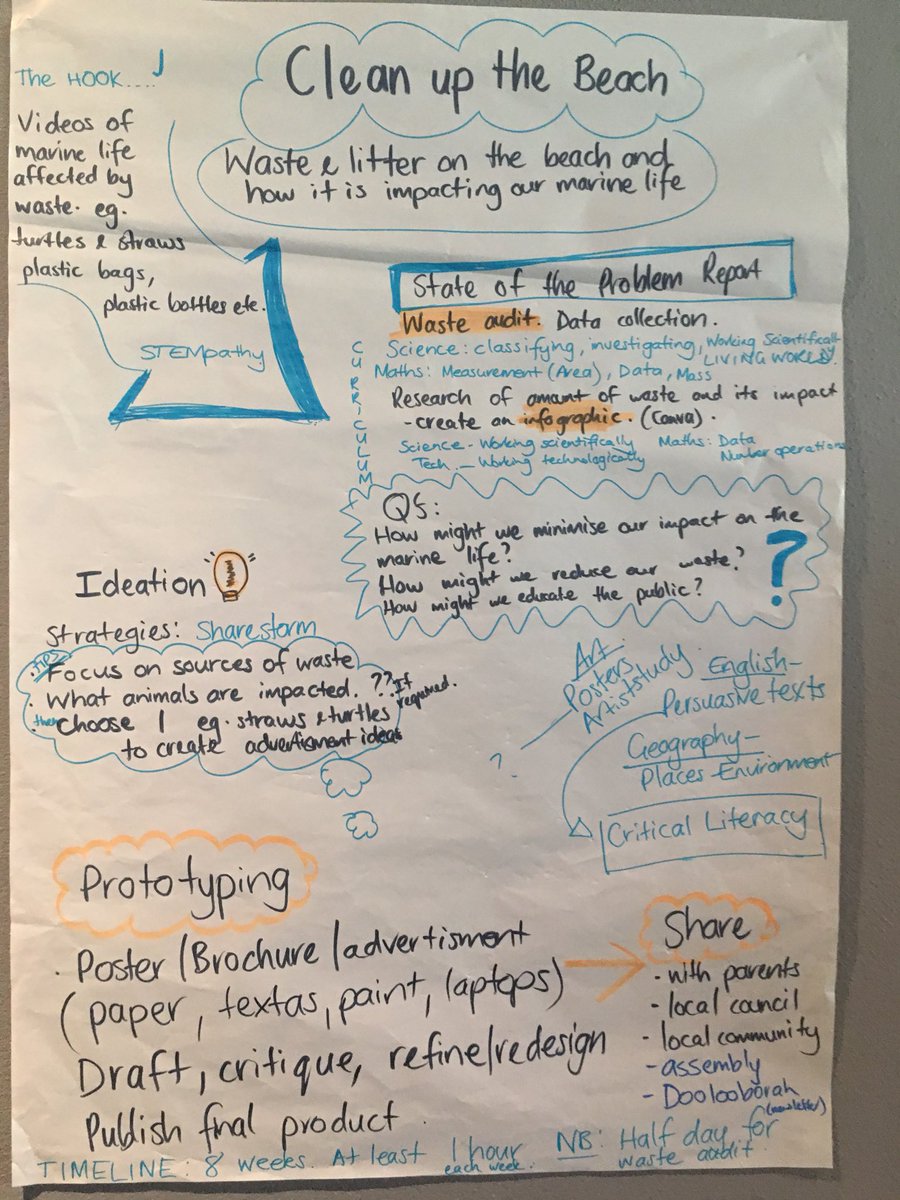 Clean up the Beach
Waste & litter on the beach and
how it is impacting our marine life
The HOOK....
Videos of
marine life
affected by
waste. eg.
turtles & straws
plastic bags,
plastic bottles etc.
STEMpathy
State of the Problem Report
Waste audit. Data collection.
CURRICULUM
Science: classifyng, investigating, Working Scientificall
LIVING WORLD.
Maths: Measurement (Area), Data, Mass
Research of amount of waste and its impact
- create an infographic. (Canva).
Science - Working scientifically
Maths: Data
Number operations
Tech. - Working technologically
Qs:
How might we minimise our impact on the
marine life?
How might we reduce our waste?
How might we educate the public?
?
Ideation
Strategies: Sharestorm
tips
· Focus on sources of waste
· What animals are impacted. ?? If
required.
then choose 1 eg. straws & turtles
to create advertisment ideas
Art
Posters
Artist study
?
English -
Persuasive texts
Geography -
Places Environment
Critical Literacy
Prototyping
· Poster/Brochure/advertisment
(paper, textas, paint, laptops)
Draft, critique, refine/redesign
Publish final product.
Share
- with parents
- local council
- local community
- assembly
- Doolooborah
(newsletter)
TIMELINE: 8 weeks. At least 1 hour
each week.
NB: Half day for
waste audit.